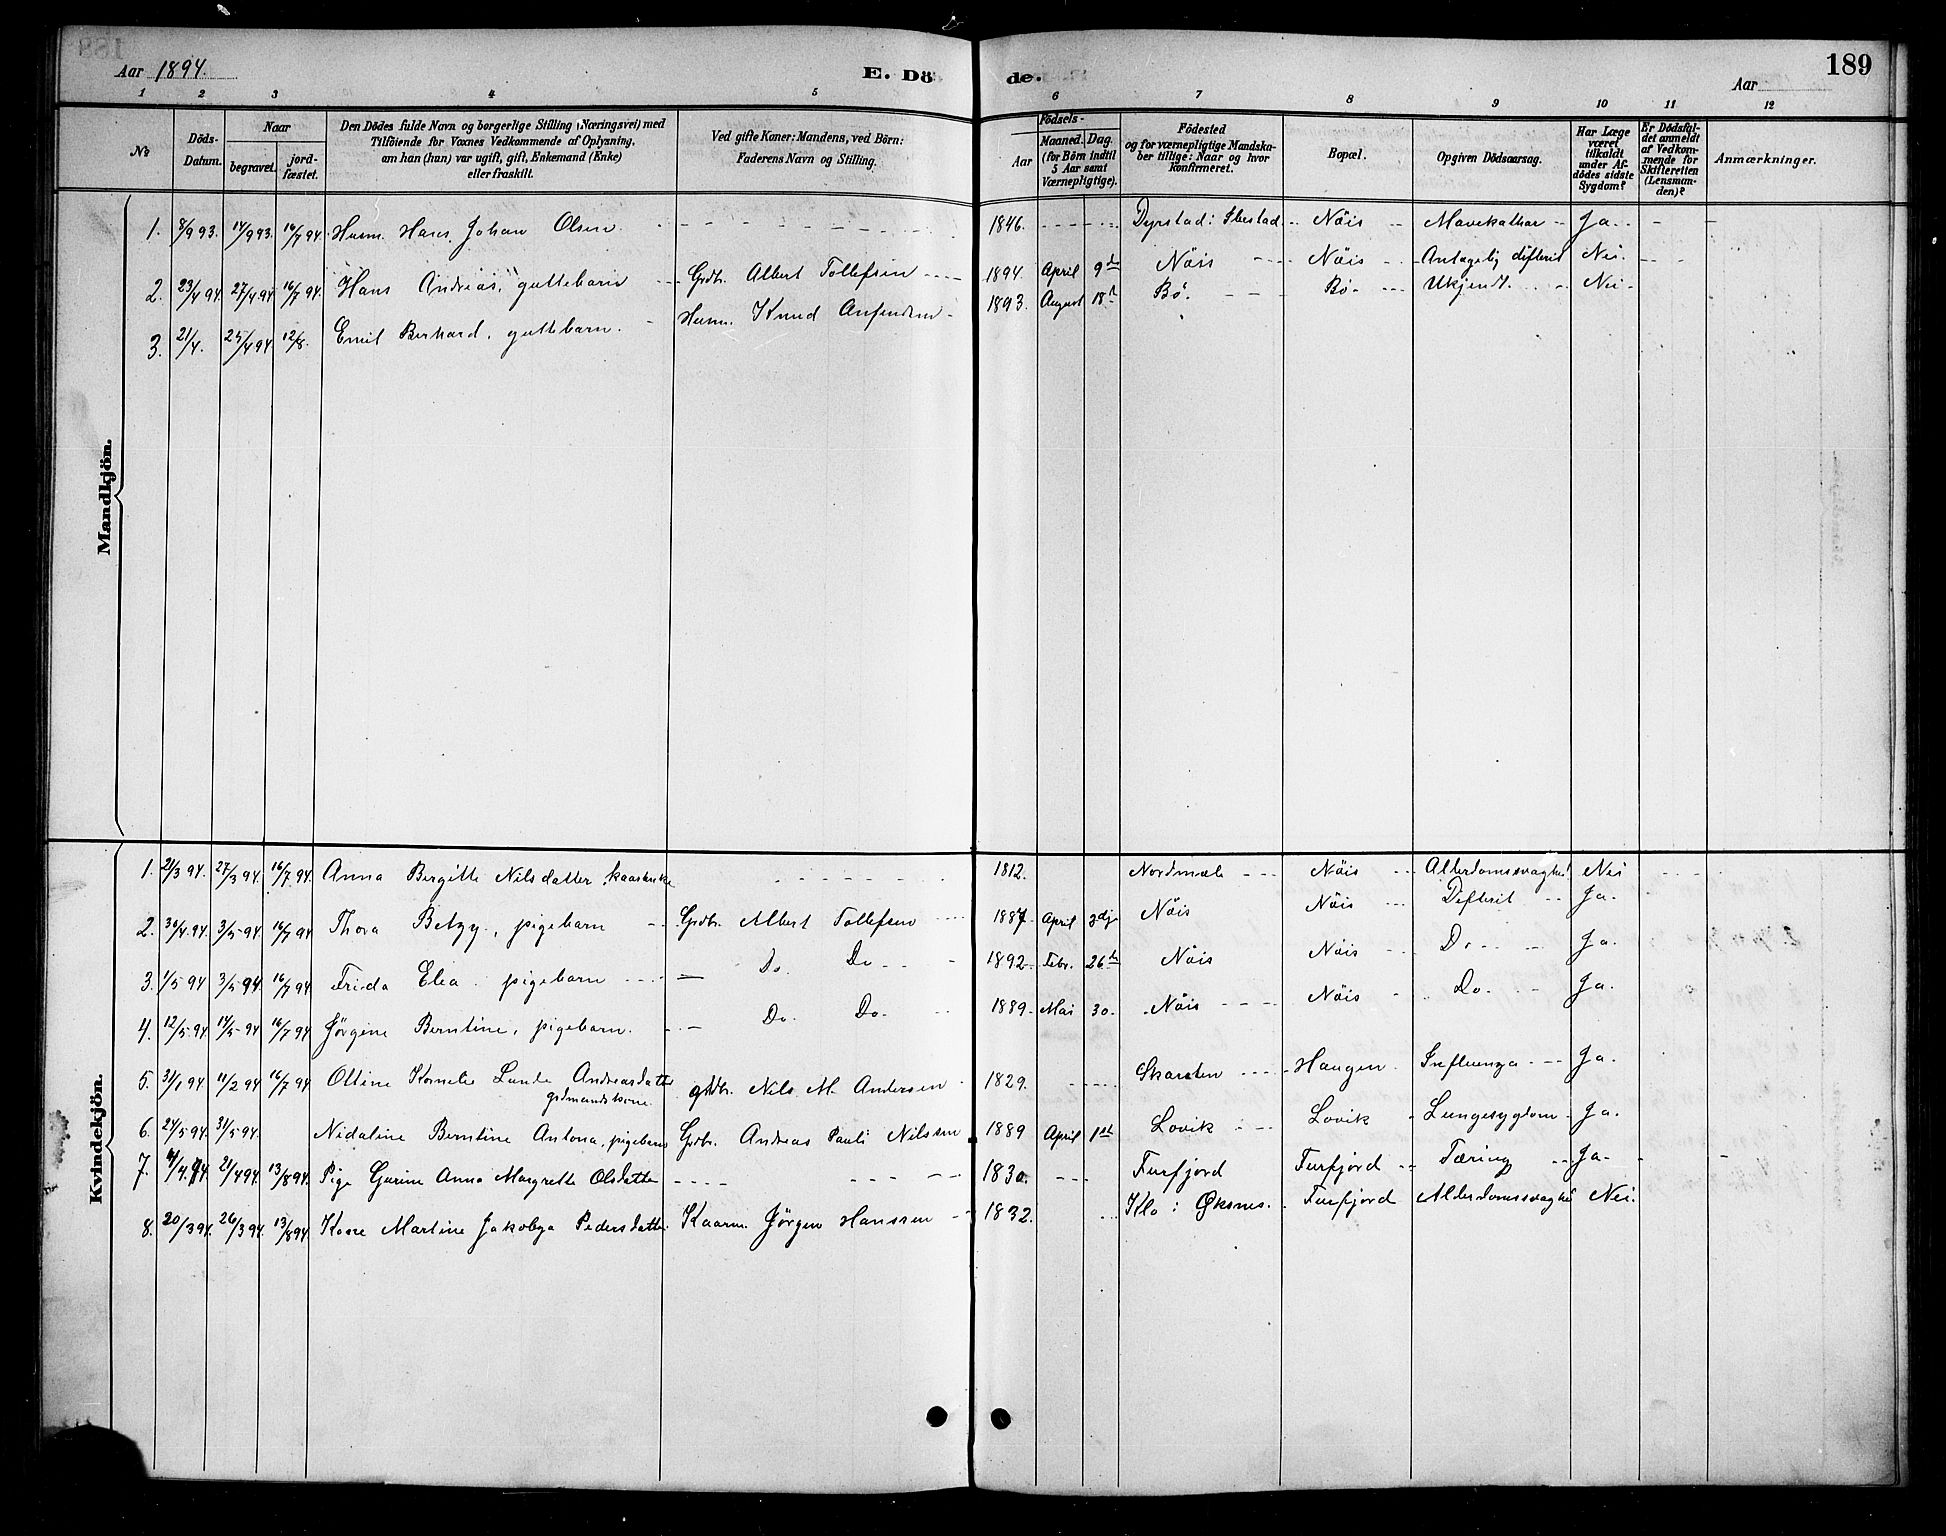 Aar 1894. E. Dö de. Aar 189
1 2 3 4 5 6 7 8 9 10 11 12
No Döds-Datum. Naar begravet. jord-fæstet. Den Dödes fulde Navn og borgerlige Stilling (Næringsvei) med Tilföiende for Voxnes Vedkommende af Oplysning, om han (hun) var ugift, gift, Enkemand (Enke) eller fraskilt. Ved gifte Koner: Mandens, ved Börn: Faderens Navn og Stilling. Födsels- Aar Maaned. Dag. (for Børn indtil 5 Aar samt Værnepligtige). Födested og for værnepligtige Mandskaber tillige: Naar og hvor Konfirmeret. Bopæl. Opgiven Dödsaarsag. Har Læge været tilkaldt under Afdödes sidste Sygdom? Er Dödsfaldet anmeldt af Vedkommende for Skifteretten (Lensmanden)? Anmærkninger.
Mandkjön.
1. 8/9 93. 14/9 93. 16/7 94. Husm. Hans Johan Olsen 1846. Dyrstad i Ibestad Nöis Mavekathar Ja.
2. 23/4 94. 27/4 94 16/7 94. Hans Andreas, guttebarn Grdbr. Albert Tollefsen 1894. April 9de Nöis Nöis Antagelig difterit Nei.
3. 21/4. 25/4 94 12/8. Emil Berhard, guttebarn. Husm. Knud Anfindsen 1893. August 18d Bö. Bö Ukjendt. Nei
Kvindekjön.
1. 21/3 94. 27/3 94. 16/7 94. Anna Bergitte Nilsdatter, kaarenke 1812. Nordmæle Nöis Alderdomssvaghed Nei
2. 30/4 94. 3/5 94. 16/7 94 Thora Betzy, pigebarn Grdbr. Albert Tollefsen 1887 April 3dje Nöis Nöis Defterit Ja.
3. 1/5 94 3/5 94. 16/7 94 Frida Elea. pigebarn Do. Do 1892 Febr. 26de Nöis Nöis Do Ja.
4. 12/5 94. 14/5 94 16/7 94 Jørgine Berntine, pigebarn. Do. Do. 1889. Mai 30. Nöis Nöis Do. Ja.
5. 31/1 94 11/2 94 16/7 94 Oltine Kornelie Lunde Andreasdatter grdmandskone grdbr. Nils M. Andersen 1829. Skarsten Haugen Influenza Ja.
6. 24/5 94. 31/5 94. Nidaline Berntine Antona, pigebarn Grdbr. Andreas Pauli Nilssen 1889 April 1st Lovik Lovik Lungesygdom Ja.
7. 4/4 94. 21/4 94 13/8 94. Pige Gurine Anna Margrette Olsdatter 1830. Furfjord Furfjord Tæring Ja
8. 20/3 94. 26/3 94. 13/8 94. Kone Martine Jakobya Pedersdatter Kaarm. Jørgen Hanssen 1832. Klo i Øksnes. Furfjord Alderdomssvaghed Nei.